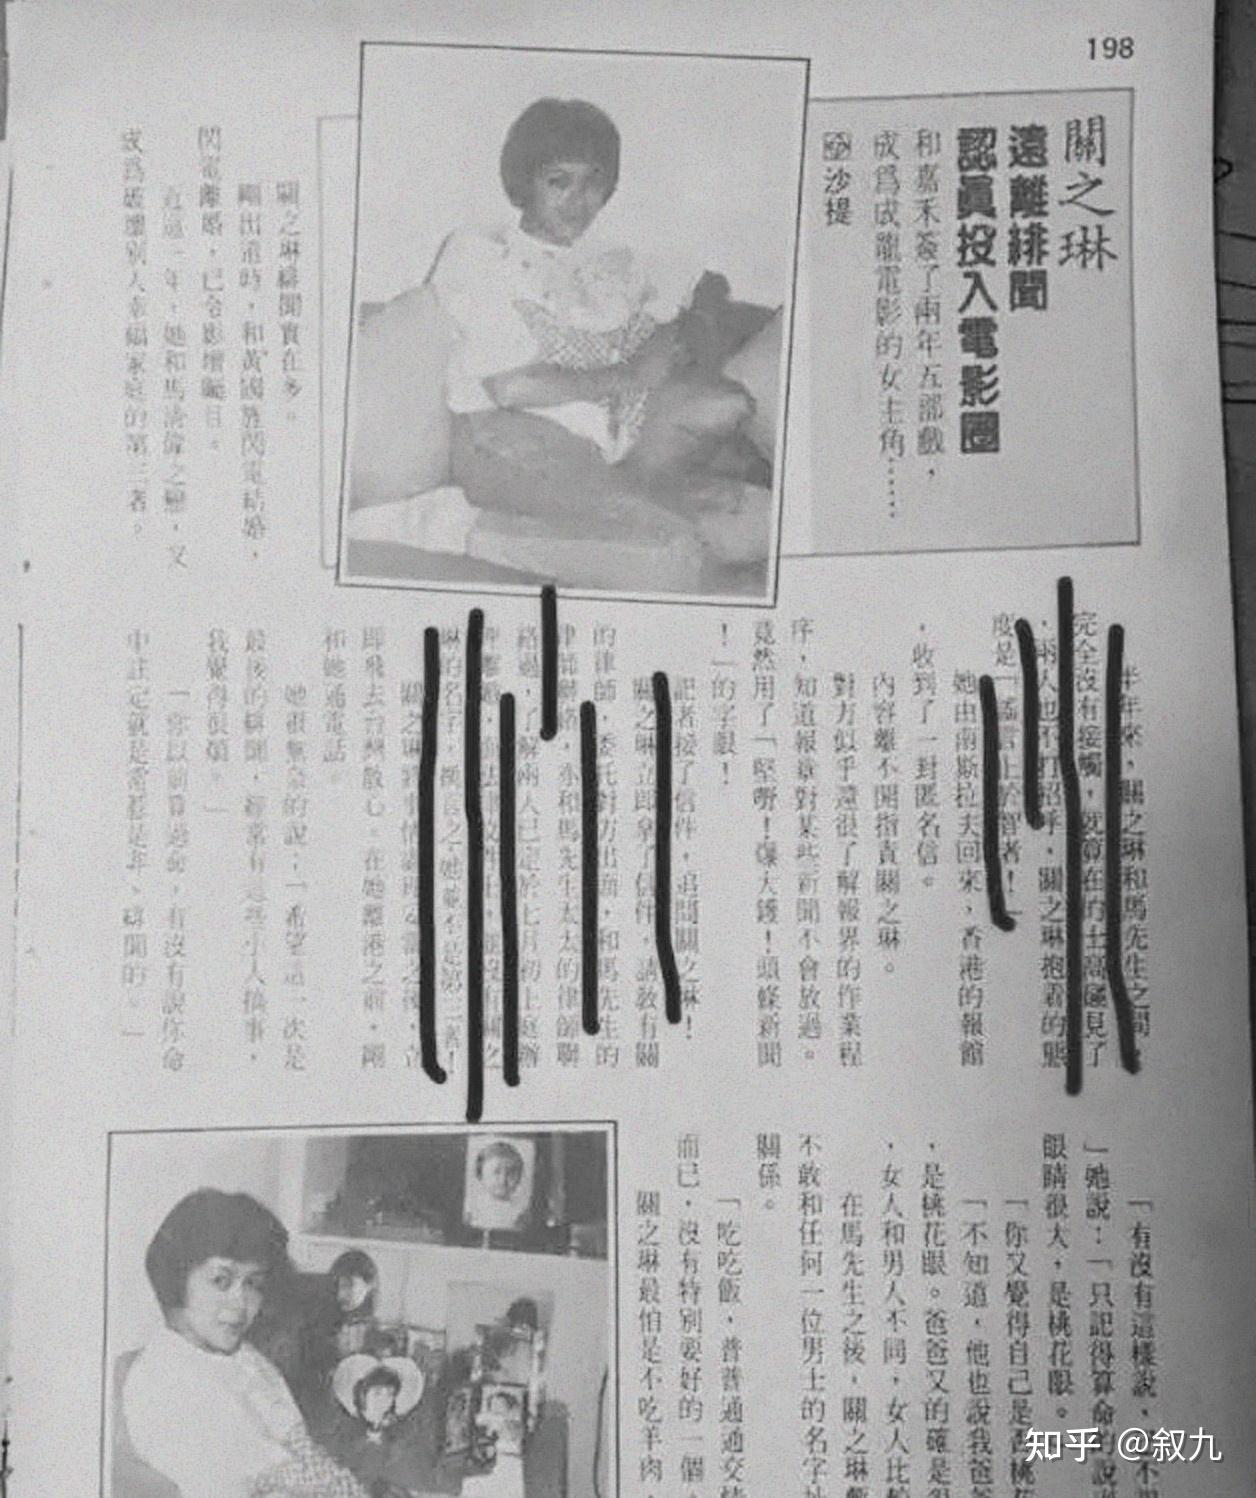 198
關之琳
遠離緋聞
認眞投入電影圈
和嘉禾簽了兩年五部戲，
成爲成龍電影的女主角……
沙提
關之琳緋聞實在多。
剛出道時，和黃國旌閃電結婚，
閃電離婚，已令影壇矚目。
近這一年，她和馬淸偉之戀，又
成爲破壞別人幸福家庭的第三者。
半年來，關之琳和馬先生之間，
完全沒有接觸，就算在的士高碰見了
，兩人也不打招呼，關之琳抱着的態
度是「謠言止於智者！」
她由南斯拉夫回來，香港的報館
，收到了一封匿名信。
內容離不開指責關之琳。
對方似乎還很了解報界的作業程
序，知道報章對某些新聞不會放過。
竟然用了「堅嘢！爆大鑊！頭條新聞
！」的字眼！
記者接了信件，追問關之琳！
關之琳立即拿了信件，請敎有關
的律師，委托對方出面，和馬先生的
律師聯絡，亦和馬先生太太的律師聯
絡過，了解兩人已定於七月初上庭辦
理離婚，而法律文件上，並沒有關之
琳的名字，換言之她並不是第三者！
關之琳將事情
即飛去台灣散心。在她離港之前，剛
和她通電話。
她很無奈的說：「希望這一次是
最後的緋聞，經常有這些小人搞事，
我覺得很煩。」
「你以前算過命，有沒有說你命
中註定就是當惹是非、緋聞的。」
「有沒有這樣說，
」她說：「只記得算命的說
眼睛很大，是桃花眼。
「你又覺得自己是否桃花
「不知道，他也說我爸爸
，是桃花眼。爸爸又的確是
，女人和男人不同，女人比較
在馬先生之後，關之琳
不敢和任何一位男士的名字
關係。
「吃吃飯，普普通通交
而已，沒有特別要好的一個。
關之琳最怕是不吃羊肉，
知乎 @叙九